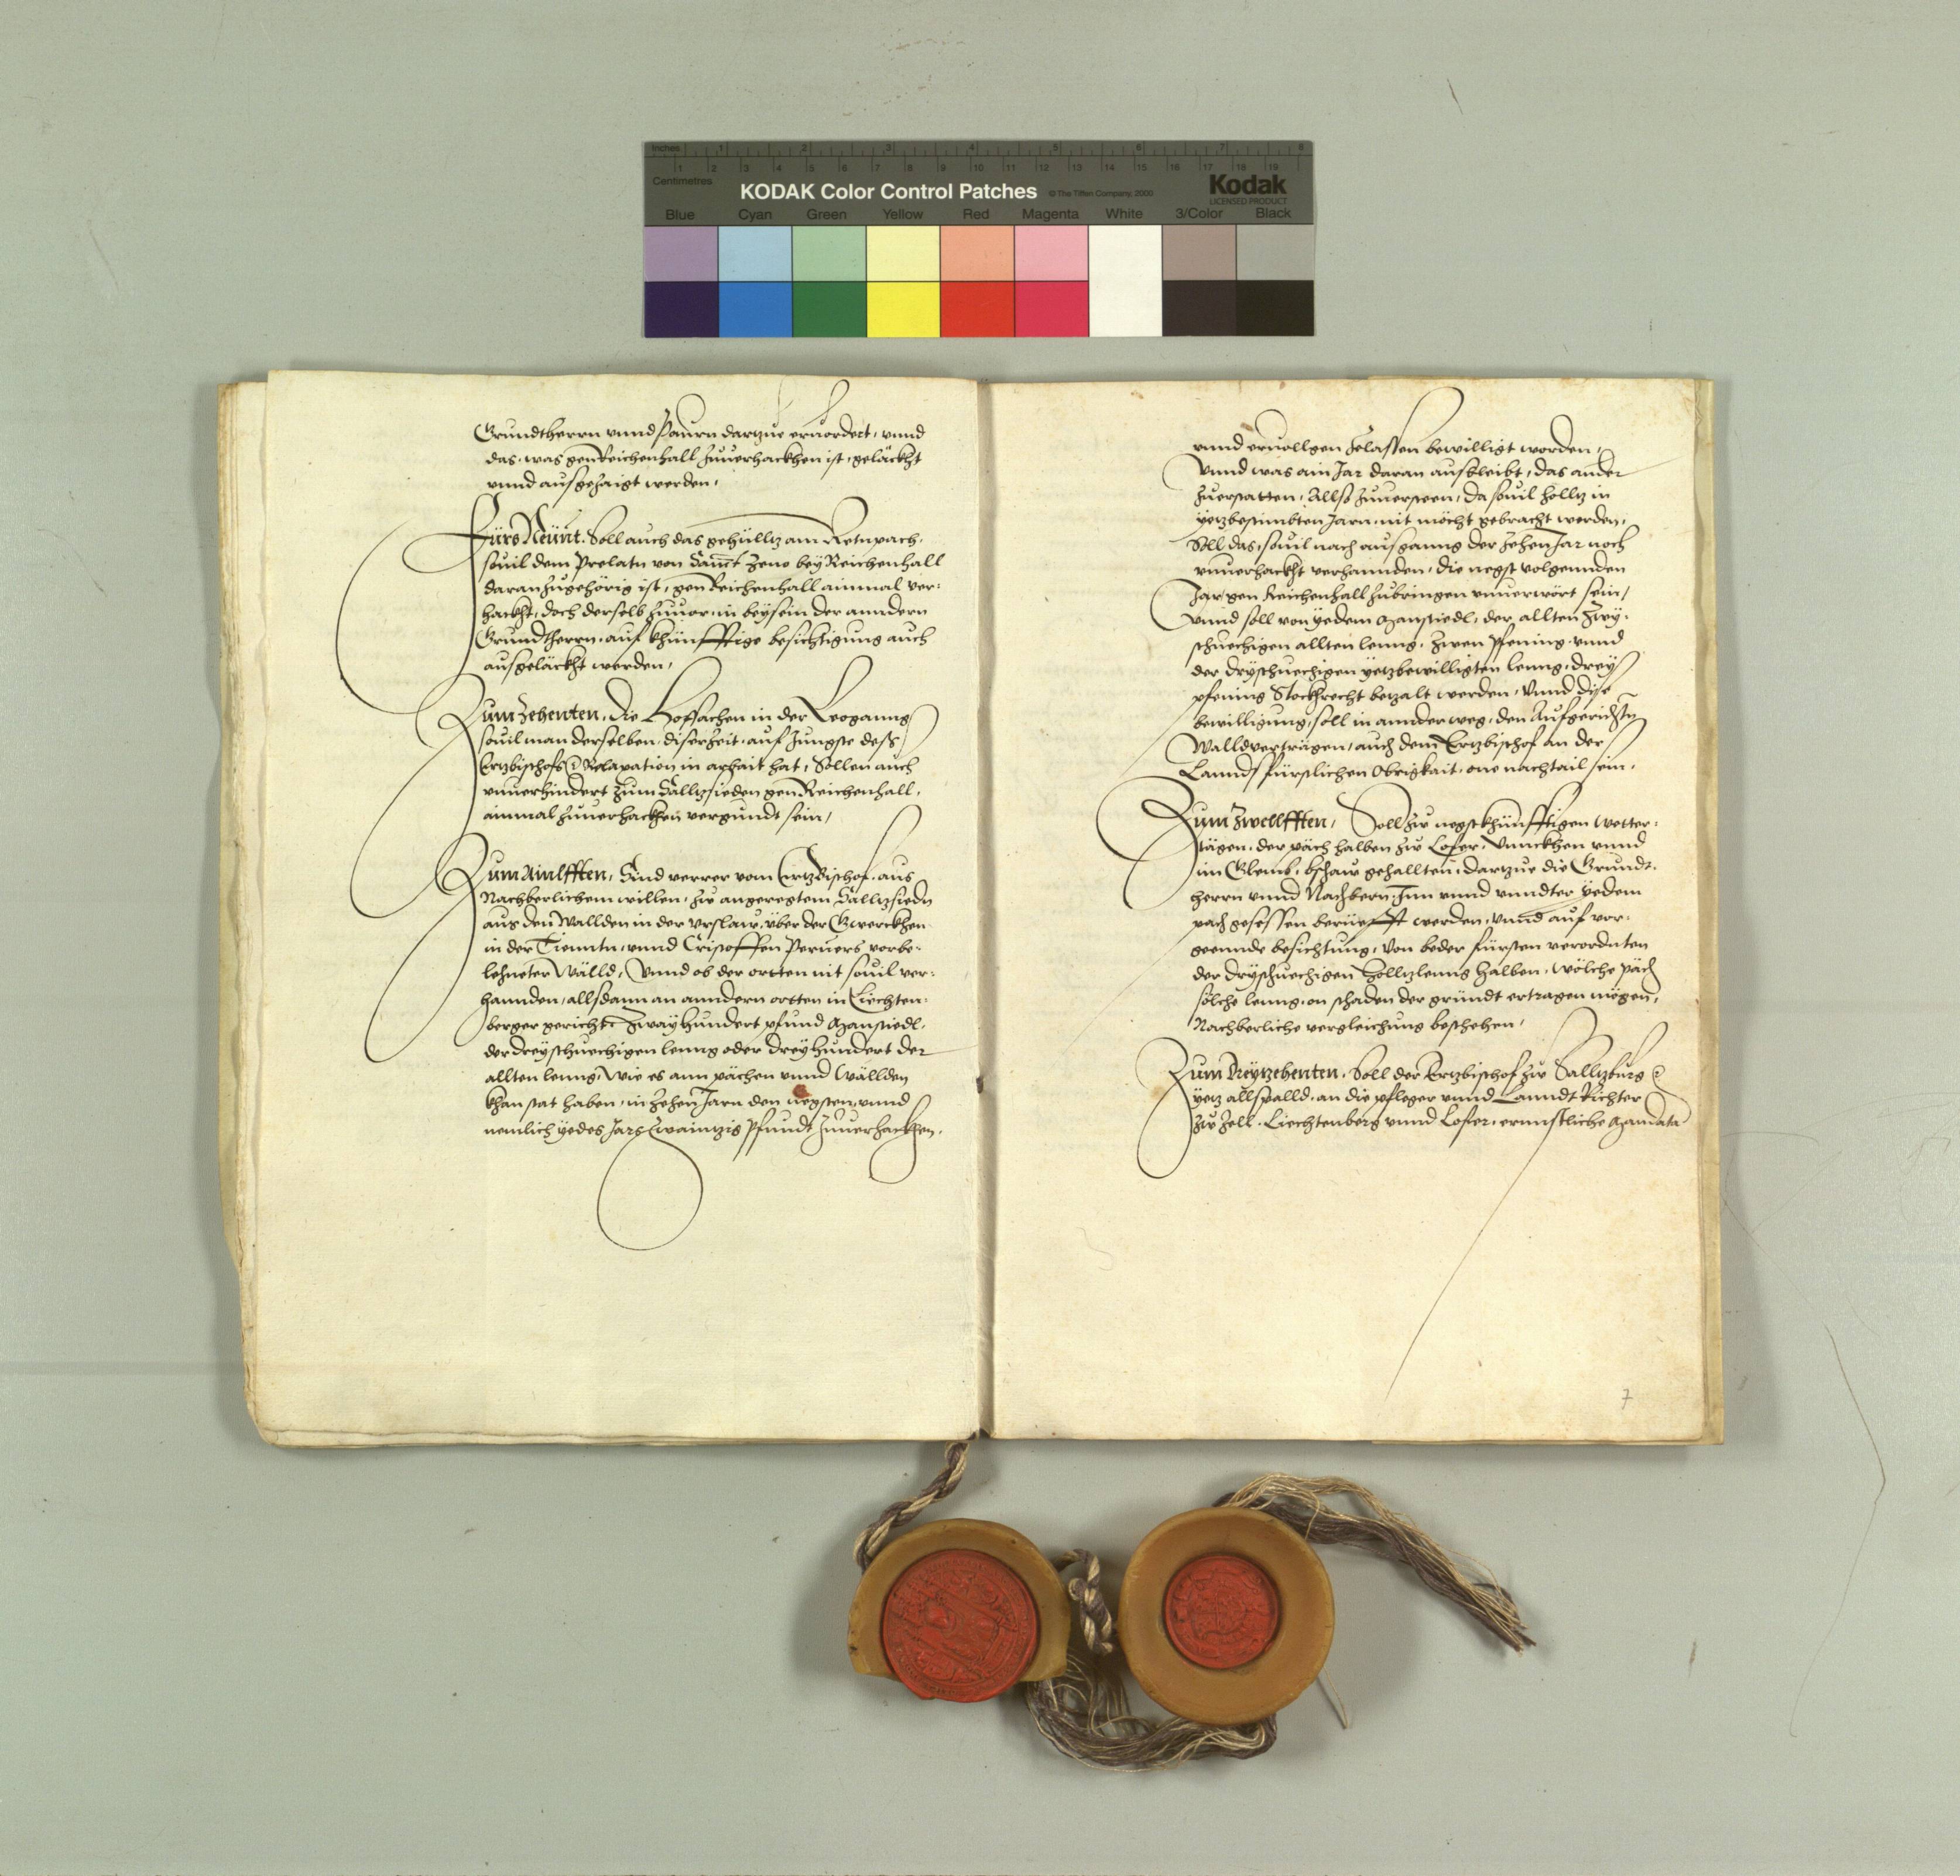 Inches 1 2 3 4 5 6 7 8
Centimetres 1 2 3 4 5 6 7 8 9 10 11 12 13 14 15 16 17 18 19
KODAK Color Control Patches © The Tiffen Company, 2000 Kodak
LICENSED PRODUCT
Blue Cyan Green Yellow Red Magenta White 3/Color Black
Grundtherrn vnnd Paurn dartzue eruordert, vnnd
das, was gen Reichenhall zuuerhackhen ist, geläckht
vnnd ausgezaigt werden,
Fürs Neünt. Soll auch das gehülltz am Retnpach,
souil dem Prelatn von Sannct Zeno bey Reichenhall
daran zugehörig ist, gen Reichenhall ainmal ver-
hackht, doch derselb zuuor, in beysein der anndern
Grundtherrn, auf khünfftige besichtigung auch
ausgeläckht werden,
Zum Zehenten, Die Hofsachen in der Leoganng
souil man derselben diser zeit, auf Jungste deß
Ertzbischofs Relaxation in arbait hat, Sollen auch
vnuerhindert zum Salltzsieden gen Reichenhall,
ainmal zuuerhackhen vergundt sein,
Zum Ainlfften, Sind verrer vom Ertzbischof, aus
Nachberlichem willen, zw angeregtem Salltzsiedn
aus den Wallden in der Vrslaw, vber der Gwerckhen
in der Tienntn, vnnd Cristoffen Perners vorbe-
lehneter Wälld, Vnnd ob der ortten nit souil ver-
hannden, allsdann an anndern ortten in Liechten-
berger gericht, Zwayhundert pfund Hanstiedl,
der dreyschuechigen lenng oder dreyhundert der
allten lenng, wie es ann pächen vnnd Wällden
khan stat haben, in zehen Jarn den negsten, vnnd
nemlich yedes Jars Zwaintzig Pfundt zuuerhackhen,
vnnd eruollgen zelassen bewilligt worden,
Vnnd was ain Jar daran ausbleibt, das ander
zuerstatten, Allso zuuersteen, da souil holltz in
yetzbestimbten Jarn, nit möcht gebracht werden,
Soll das, souil nach ausganng der zehen Jar noch
vnuerhackht verhannden, die negst volgennden
Jar gen Reichenhall zubringen vnuerwört sein,
Vnnd soll von yedem Hanstiedl, der allten zwy-
schuechigen allten lenng, zwen Pfening, vnnd
der dryschuechigen yetzbewilligten lenng, drey
pfening Stockhrecht betzalt werden, Vnnd dise
bewilligung, soll in annder weg, den Aufgerichtn
Walldverträgen, auch dem Ertzbischof an der
Lanndsfürstlichen Obrigkait, one nachtail sein,
Zum Zwellfften, Soll zw negstkhünfftigen wetter-
tägen, der päch halben zw Lofer, Vnnckhen vnnd
im Glemb, bschaw gehallten, dartzue die Grundt-
herrn vnnd Nachbern Inn vnnd vnndter yedem
pach gesessen berüefft werden, vnnd auf vor-
geennde besichtung, von beder fürsten verordnten
der dryschuechigen Holltzlenng halben, wölche päch
sölche lenng, on schaden der gründt ertragen mögen,
Nachberliche vergleichung beschehen,
Zum Dreytzehenten, Soll der Ertzbischof zw Salltzburg
yetz allspalld, an die pfleger vnnd Lanndt Richter
zw Zell, Liechtenberg vnnd Lofer, ernnstliche Mandata
7